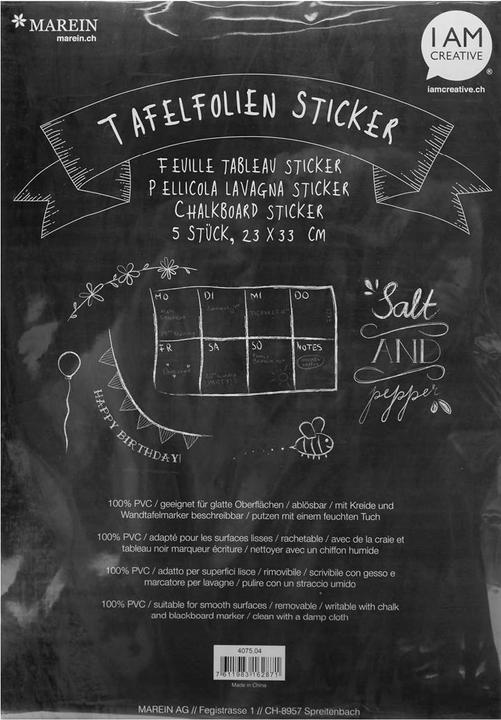 MAREIN
marein.ch
I AM
CREATIVE
®
iamcreative.ch
TAFELFOLIEN STICKER
FEUILLE TABLEAU STICKER
PELLICOLA LAVAGNA STICKER
CHALKBOARD STICKER
5 STÜCK, 23 X 33 CM
MO DI MI DO
FR SA SO NOTES
Salt
AND
pepper
HAPPY BIRTHDAY!
100% PVC / geeignet für glatte Oberflächen / ablösbar / mit Kreide und
Wandtafelmarker beschreibbar / putzen mit einem feuchten Tuch
100% PVC / adapté pour les surfaces lisses / rachetable / avec de la craie et
tableau noir marqueur écriture / nettoyer avec un chiffon humide
100% PVC / adatto per superfici lisce / rimovibile / scrivibile con gesso e
marcatore per lavagne / pulire con un straccio umido
100% PVC / suitable for smooth surfaces / removable / writable with chalk
and blackboard marker / clean with a damp cloth
4075.04
7 611983 162871
Made in China
MAREIN AG // Fegistrasse 1 // CH-8957 Spreitenbach